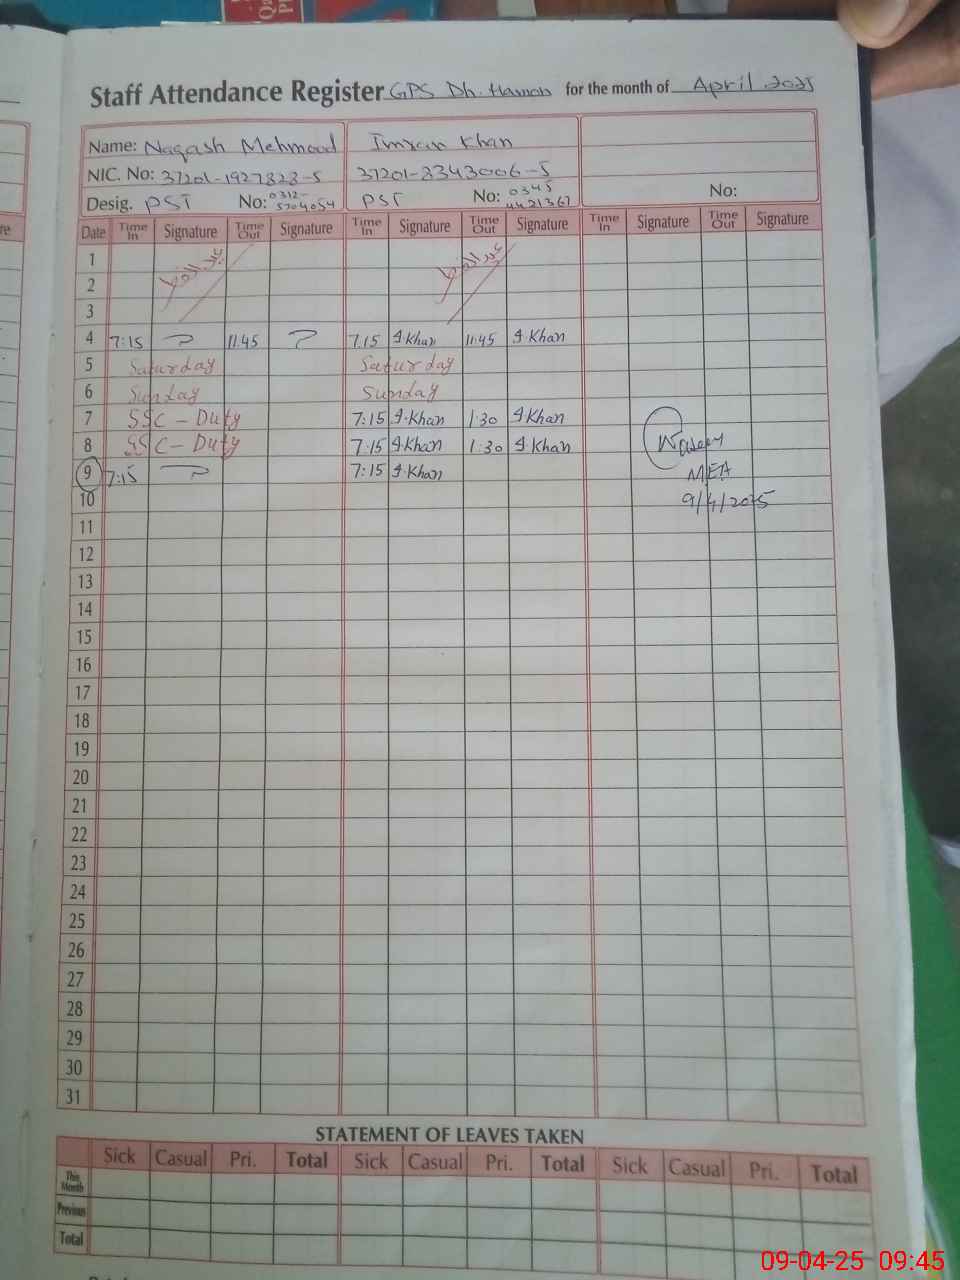 Staff Attendance Register GPS Dh. Hamon for the month of April 2025
Name: Naqash Mehmood Imran Khan
NIC. No: 37201-1927828-5 37201-8343006-5
Desig. PST No: 0312-5704054 PST No: 0345 4421367 No:
Date Time In Signature Time Out Signature Time In Signature Time Out Signature Time In Signature Time Out Signature
1 عید الفطر عید الفطر
2
3
4 7:15 11:45 7:15 I.Khan 11:45 I.Khan
5 Saturday Saturday
6 Sunday Sunday
7 SSC - Duty 7:15 I.Khan 1:30 I.Khan
8 SSC - Duty 7:15 I.Khan 1:30 I.Khan Waseem
9 7:15 7:15 I.Khan MEA
10 9/4/2025
11
12
13
14
15
16
17
18
19
20
21
22
23
24
25
26
27
28
29
30
31
STATEMENT OF LEAVES TAKEN
Sick Casual Pri. Total Sick Casual Pri. Total Sick Casual Pri. Total
This Month
Previous
Total
09-04-25 09:45